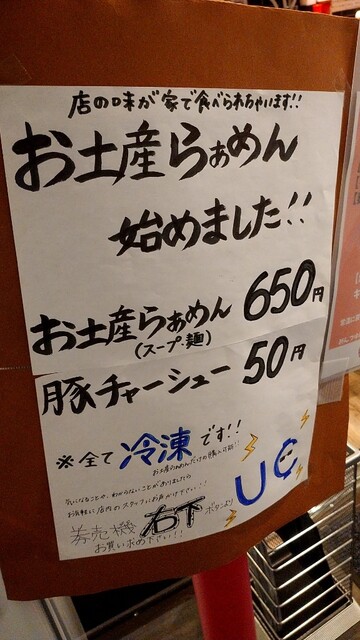 店の味が家で食べられちゃいます!!
お土産らぁめん
始めました!!
お土産らぁめん 650円
(スープ・麺)
豚チャーシュー 50円
※全て冷凍です!!
お土産らぁめんだけの購入は可能!!
気になることや、わからないことがありましたら
お気軽に店内のスタッフにお声がけ下さい!!
券売機 右下 ボタンより
お買い求め下さい!!